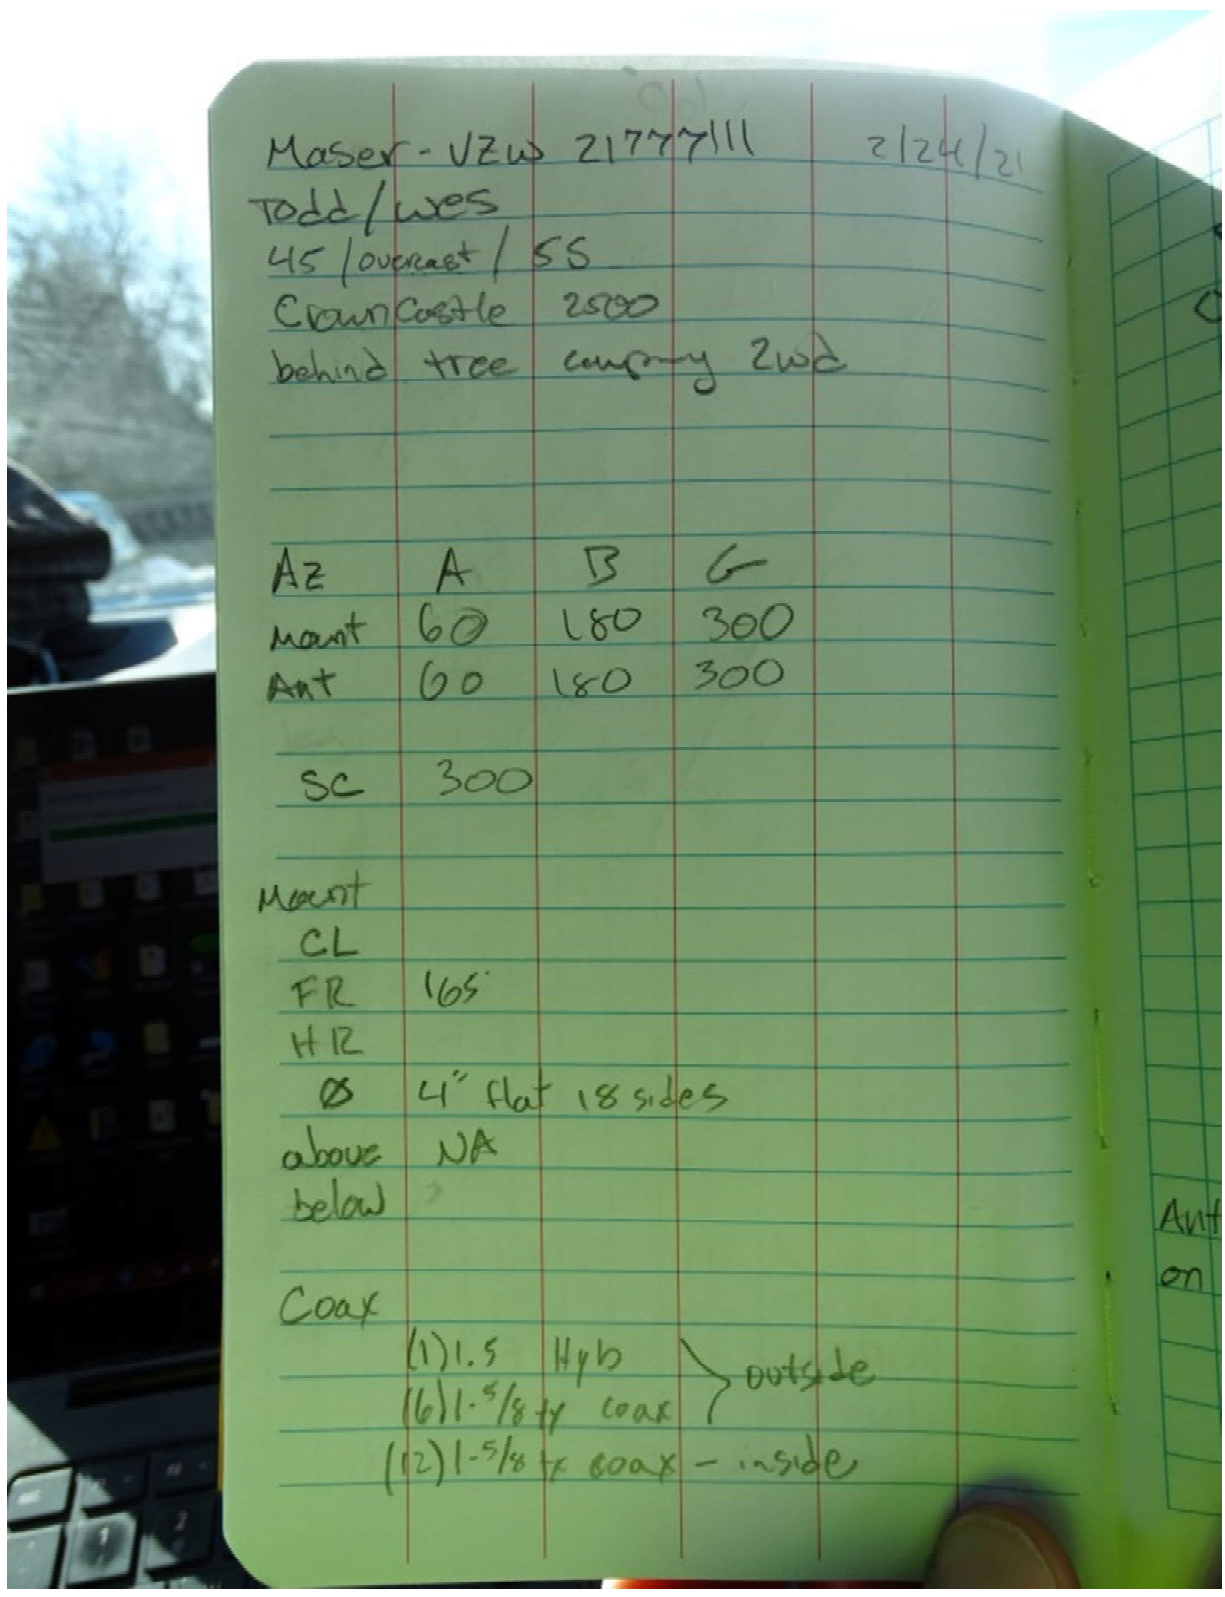 Maser - VZW 21777111 2/24/21
Todd/Wes
45 / overcast / SS
Crown Castle 2500
behind tree company 2wd
AZ A B G
Mount 60 180 300
Ant 60 180 300
SC 300
Mount
CL
FR 165
HR
Ø 4" flat 18 sides
above NA
below
Coax
(1) 1.5 Hyb
(6) 1-5/8 coax } outside
(12) 1-5/8 coax - inside
Ant
on